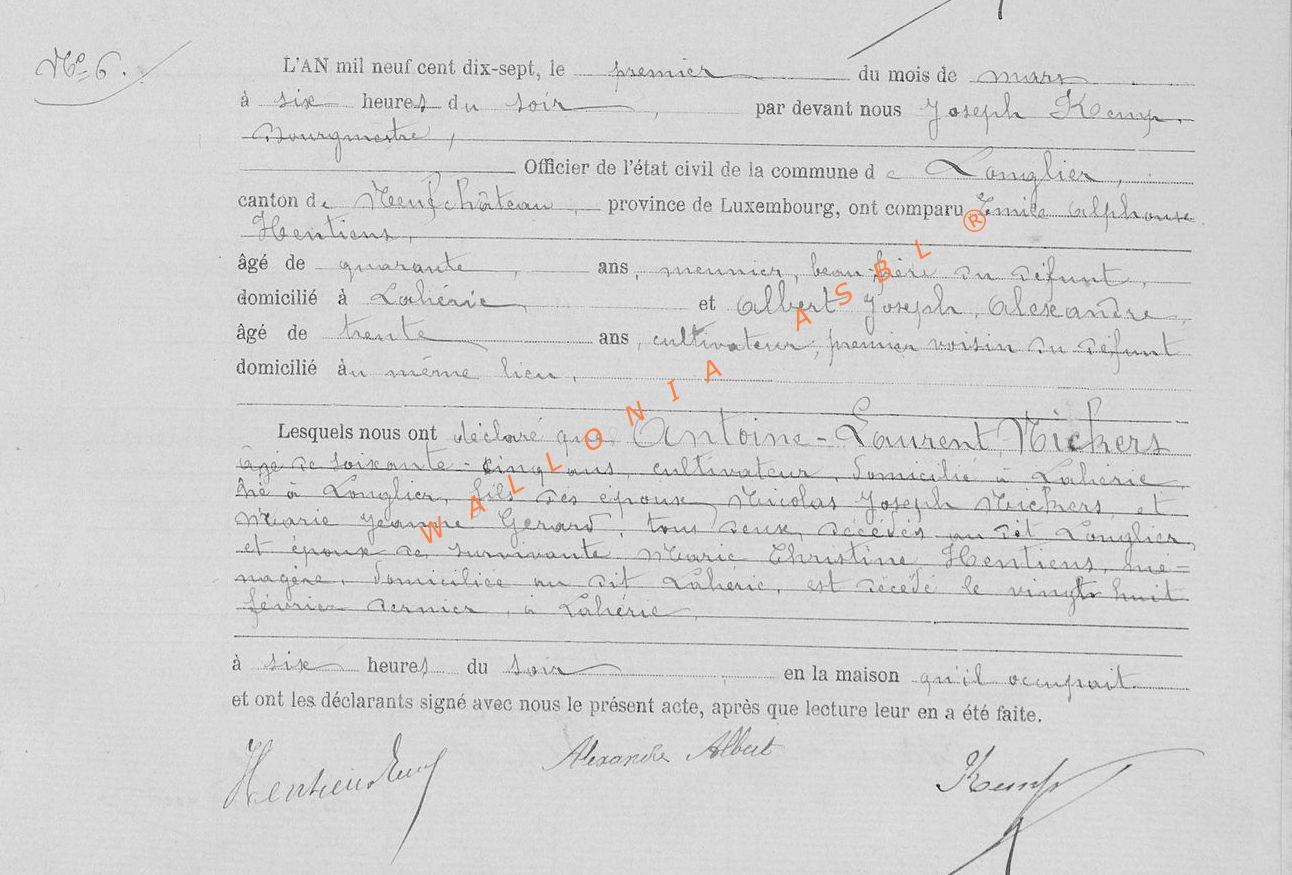 Nº 6.
L'AN mil neuf cent dix-sept, le premier du mois de mars
à six heures du soir, par devant nous Joseph Kemp,
Bourgmestre,
Officier de l'état civil de la commune de Longlier,
canton de Neufchâteau, province de Luxembourg, ont comparu Emile Alphonse
Hentiens,
âgé de quarante, ans, meunier, beau-frère du défunt,
domicilié à Lahérie, et Albert Joseph Alexandre,
âgé de trente ans, cultivateur, premier voisin du défunt
domicilié au même lieu,
Lesquels nous ont déclaré que Antoine-Laurent Nickers
âgé de soixante-cinq ans, cultivateur, domicilié à Lahérie,
né à Longlier, fils des époux Nicolas Joseph Nickers et
Marie Jeanne Gerard, tous deux décédés au dit Longlier,
et époux de survivante Marie Christine Hentiens, mé-
nagère, domiciliée au dit Lahérie, est décédé le vingt huit
février dernier, à Lahérie,
à six heures du soir, en la maison qu'il occupait
et ont les déclarants signé avec nous le présent acte, après que lecture leur en a été faite.
Alexandre Albert
Kemp
WALLONIA ASBL ®